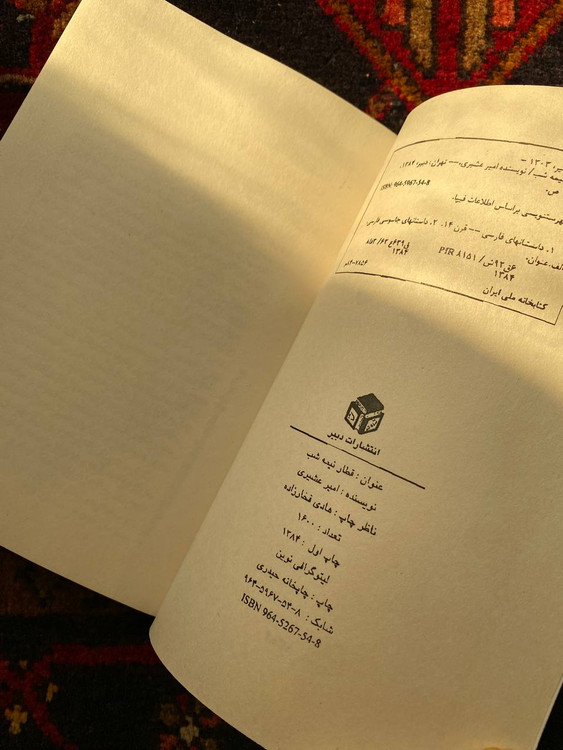 ۱۳۰۳ -
نیمه شب / نویسنده امیر عشیری. -- تهران: دبیر، ۱۳۸۴.
ص.
ISBN: 964-5967-54-8
فهرستنویسی براساس اطلاعات فیپا.
۱. داستانهای فارسی -- قرن ۱۴. ۲. داستانهای جاسوسی فارسی.
الف. عنوان.
PIR ۸۱۵۱ /
۱۳۸۴
۱۳۸۴
کتابخانه ملی ایران
انتشارات دبیر
عنوان : قطار نیمه شب
نویسنده : امیر عشیری
ناظر چاپ : هادی قفارزاده
تعداد : ۱۶۰۰
چاپ اول : ۱۳۸۴
لیتوگرافی نوین
چاپ : چاپخانه حیدری
شابک : ۸-۵۴-۵۹۶۷-۹۶۴
ISBN 964-5267-54-8